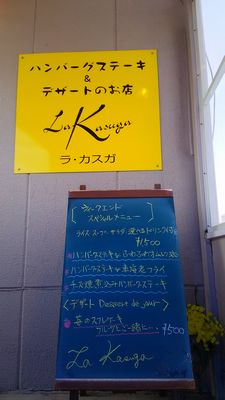 ハンバーグステーキ
&
デザートのお店
La Kasuga
ラ・カスガ
ウィークエンド
スペシャルメニュー
ライス スープ サラダ 選べるドリンク付
¥1500
ハンバーグステーキ&ふわふわオムレツ
ハンバーグステーキ&車海老フライ
チーズ焼煮込みハンバーグステーキ
〈デザート Dessert de jour〉
苺のスフレケーキ
¥500
La Kasuga